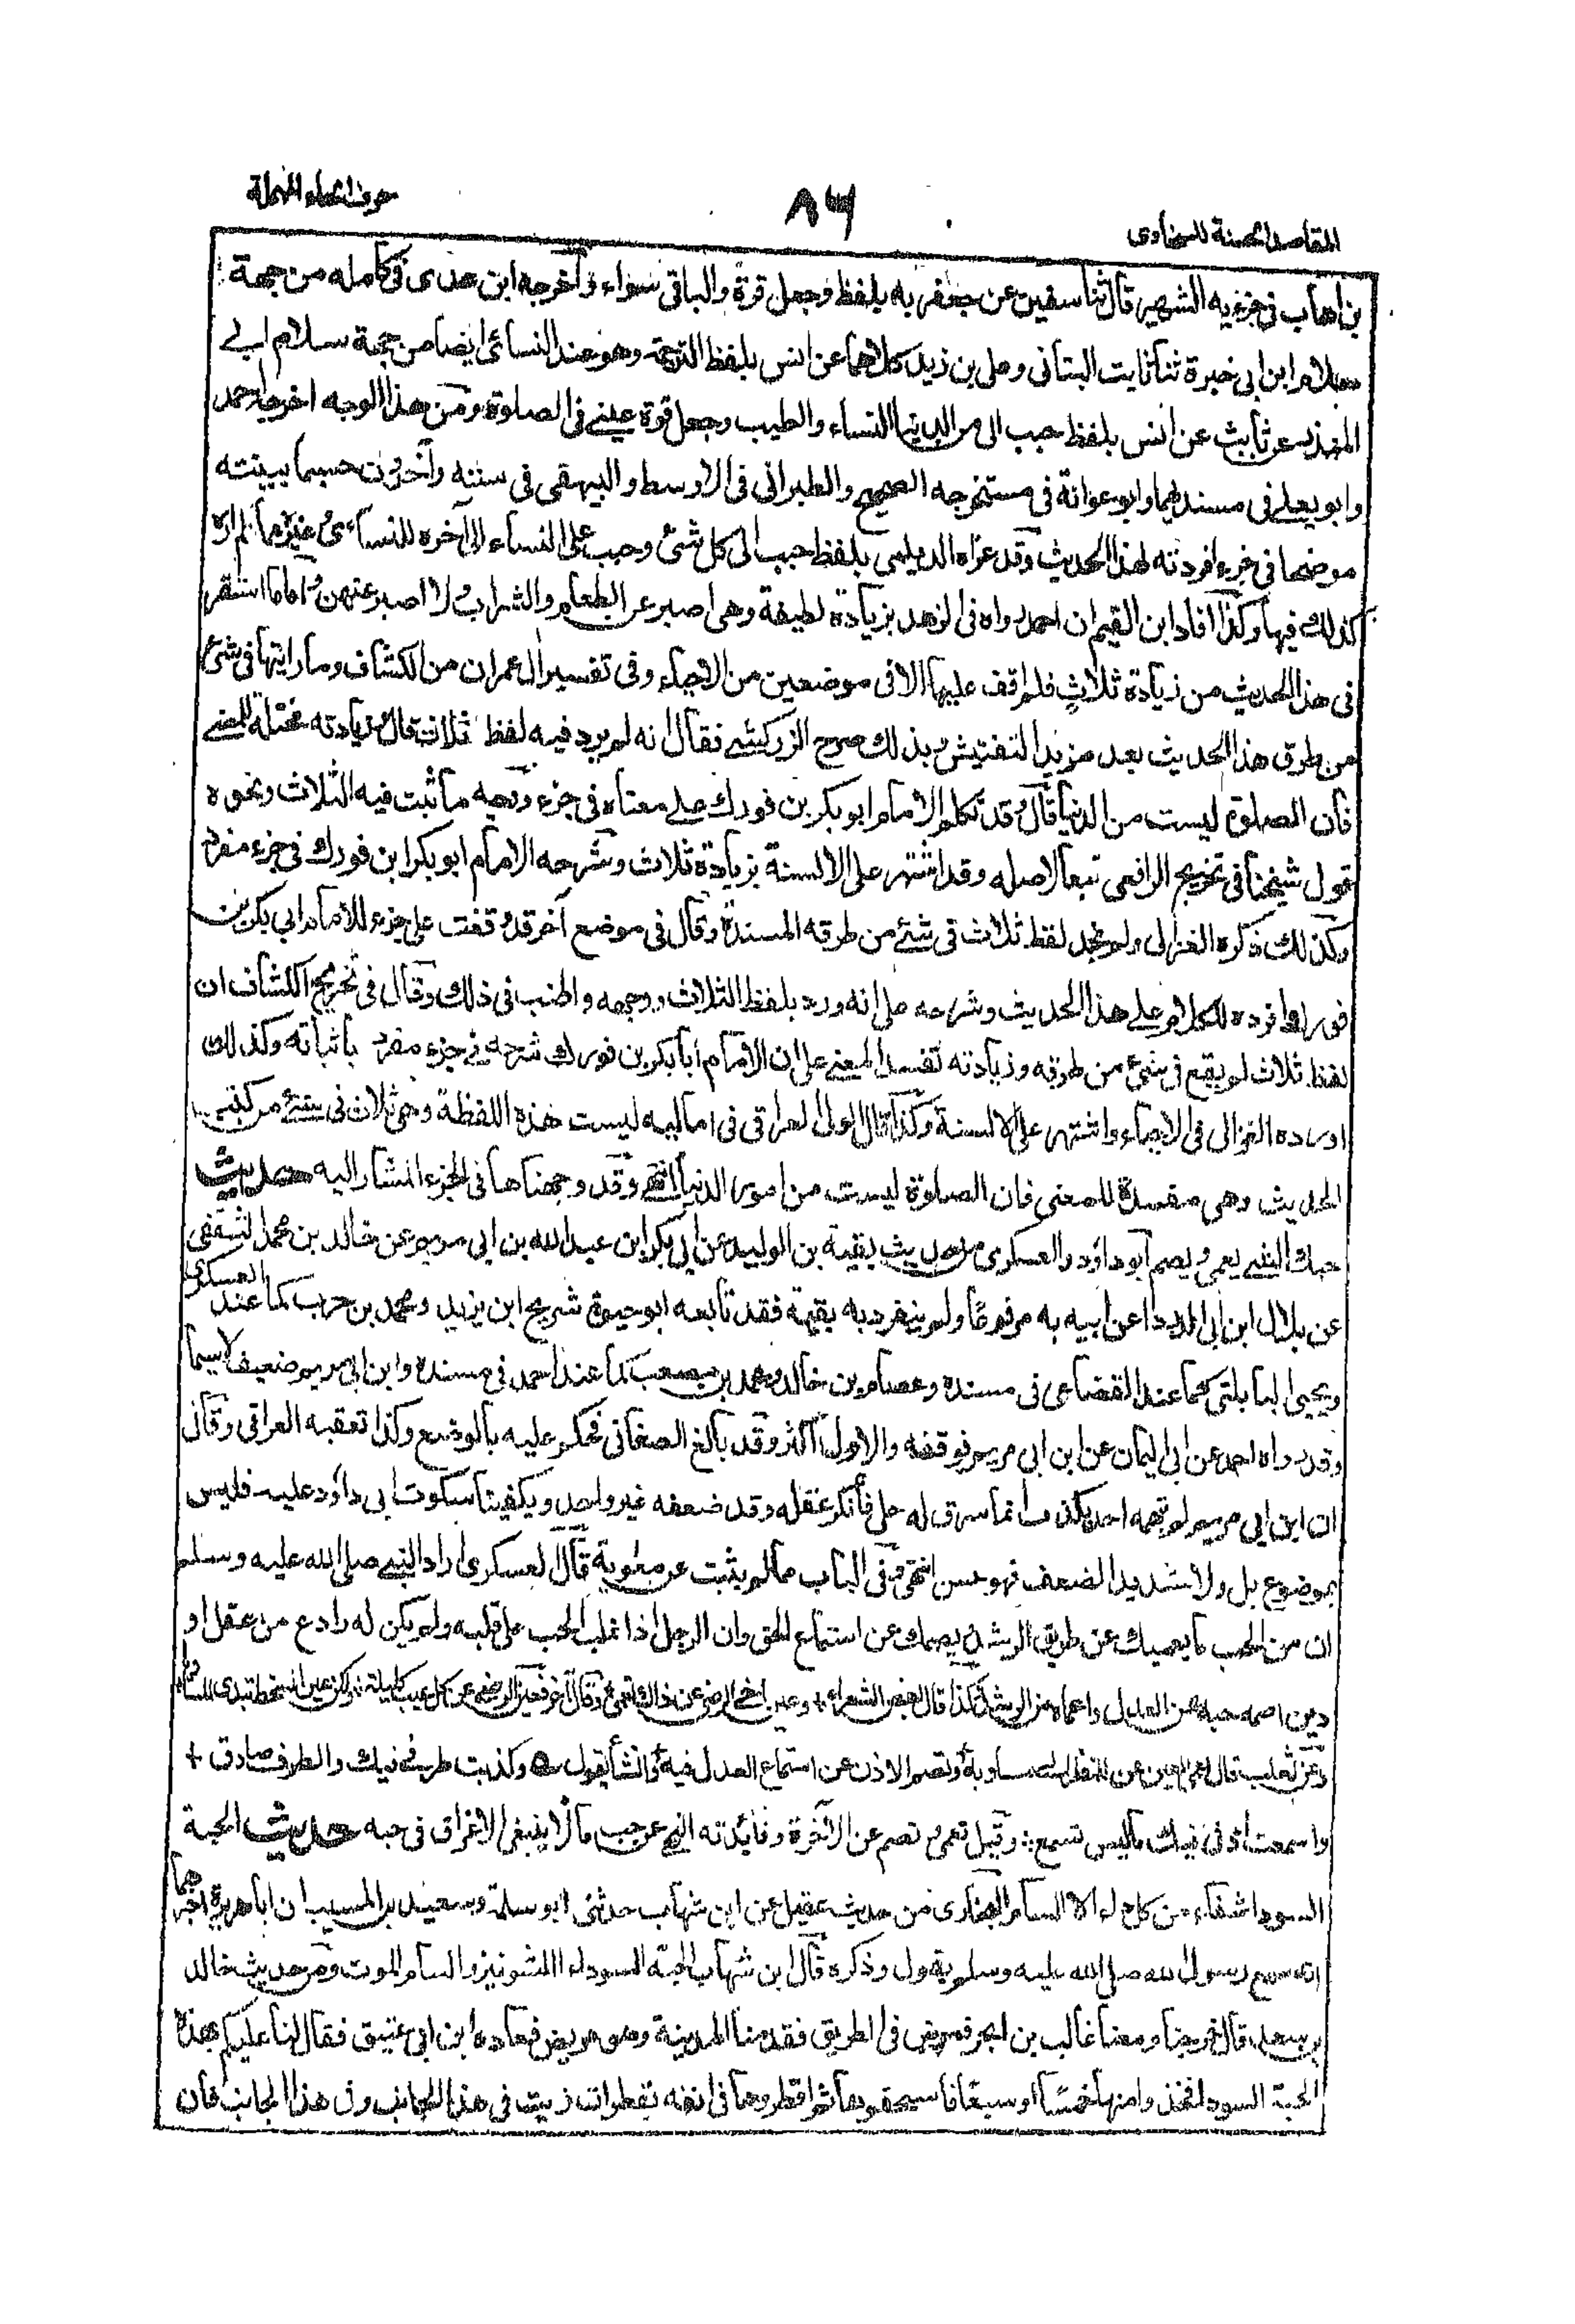 المقاصد الحسنة للسخاوى
٨٦
حرف الحاء المهملة
بن اهاب فى جزئه الشهير قال ثنا سفين عن جعفر به بلفظ وجعل قرة والباقى سواء واخرجه ابن عدى فى كامله من جهة
سلام ابن ابى خبزة ثنا ثابت البنانى وعلى بن زيد كلاهما عن انس بلفظ الترجمة وهو عند النسائى ايضا من جهة سلام ابى
المنذر عن ثابت عن انس بلفظ حبب الى من الدنيا النساء والطيب وجعل قرة عينى فى الصلوة ومن هذا الوجه اخرجه احمد
وابو يعلى فى مسنديهما وابو عوانة فى مستخرجه الصحيح والطبرانى فى الاوسط والبيهقى فى سننه وآخرون حسبما بينته
موضحا فى جزء افردته لهذا الحديث وقد عزاه الديلمى بلفظ حبب الى كل شئ وحبب على النساء الى آخره للنسائى وغيره مما لم اره
كذلك فيها وكذا افاد ابن القيم ان احمد رواه فى الزهد بزيادة لطيفة وهى اصبر عن الطعام والشراب ولا اصبر عنهن واما ما استقر
فى هذا الحديث من زيادة ثلاث فلم اقف عليها الا فى موضعين من الاحياء وفى تفسير آل عمران من الكشاف وما رايتها فى شئ
من طرق هذا الحديث بعد مزيد التفتيش وبذلك صرح الزركشى فقال انه لم يرد فيه لفظ ثلاث قال وزيادته محيلة للمعنى
فان الصلوة ليست من الدنيا قال وقد تكلم الامام ابو بكر بن فورك على معناه فى جزء ووجه ما ثبت فيه الثلاث ونحوه
قول شيخنا فى تخريج الرافعى تبعا لاصله وقد اشتهر على الالسنة بزيادة ثلاث وشرحه الامام ابو بكر ابن فورك فى جزء مفرد
وكذلك ذكره الغزالى ولم نجد لفظ ثلاث فى شئ من طرقه المسندة وقال فى موضع آخر قد وقفت على جزء للامام ابى بكر بن
فورك افرده للكلام على هذا الحديث وشرحه على انه ورد بلفظ الثلاث ووجهه واطنب فى ذلك وقال فى تخريج الكشاف ان
لفظ ثلاث لم يقع فى شئ من طرقه وزيادته تفسد المعنى على ان الامام ابا بكر بن فورك شرحه فى جزء مفرد باثباته وكذلك
اورده الغزالى فى الاحياء واشتهر على الالسنة وكذا قال الولى العراقى فى اماليه ليست هذه اللفظة وهى ثلاث فى شئ من كتب
الحديث وهى مفسدة للمعنى فان الصلوة ليست من امور الدنيا انتهى وقد وجهناها فى الجزء المشار اليه حديث
حبك الشئ يعمى ويصم ابو داود والعسكرى من حديث بقية بن الوليد عن ابى بكر ابن عبد الله بن ابى مريم عن خالد بن محمد الثقفى
عن بلال ابن ابى الدرداء عن ابيه به مرفوعا ولم ينفرد به بقية فقد تابعه ابو حيوة شريح ابن يزيد ومحمد بن حرب كما عند العسكرى
ويحيى البابلتى كما عند القضاعى فى مسنده وعصام بن خالد ومحمد بن مصعب كما عند احمد فى مسنده وابن ابى مريم ضعيف لا سيما
وقد رواه احمد عن ابى اليمان عن ابن ابى مريم فوقفه والاول اكثر وقد بالغ الصغانى فحكم عليه بالوضع وكذا تعقبه العراقى وقال
ان ابن ابى مريم لم يتهمه احد بكذب انما سرق له حلى فأنكر عقله وقد ضعفه غير واحد ويكفينا سكوت ابى داود عليه فليس
بموضوع بل ولا شديد الضعف فهو حسن انتهى وفى الباب مما لم يثبت عن معوية قال العسكرى اراد النبى صلى الله عليه وسلم
ان من الحب ما يعميك عن طريق الرشد ويصمك عن استماع الحق وان الرجل اذا غلب الحب على قلبه ولم يكن له رادع من عقل او
دين اصمه حبه عن العدل واعماه عن الرشد وكذا قال بعض الشعراء وعين اخى الرضى عن ذاك تعمى وقال آخر فعين الرضى عن كل عيب كليلة ولكن عين السخط تبدى المساويا
وعن ثعلب قال تعمى العين عن النظر الى مساويه وتصم الاذن عن استماع العدل فيه وانشأ يقول وكذبت طرفى فيك والطرف صادق
واسمعت اذنى فيك ما ليس تسمع وقيل تعمى وتصم عن الآخرة وفائدته النهى عن حب ما لا ينبغى الاغراق فى حبه حديث الحبة
السوداء شفاء من كل داء الا السام البخارى من حديث عقيل عن ابن شهاب حدثنى ابو سلمة وسعيد بن المسيب ان ابا هريرة اخبرهما
انه سمع رسول الله صلى الله عليه وسلم يقول وذكره قال ابن شهاب الحبة السوداء الشونيز والسام الموت ومن حديث خالد
بن سعد قال خرجنا ومعنا غالب بن ابجر فمرض فى الطريق فقدمنا المدينة وهو مريض فعاده ابن ابى عتيق فقال لنا عليكم بهذه
الحبة السوداء فخذوا منها خمسا او سبعا فاسحقوها ثم اقطروها فى انفه بقطرات زيت فى هذا الجانب وفى هذا الجانب فان